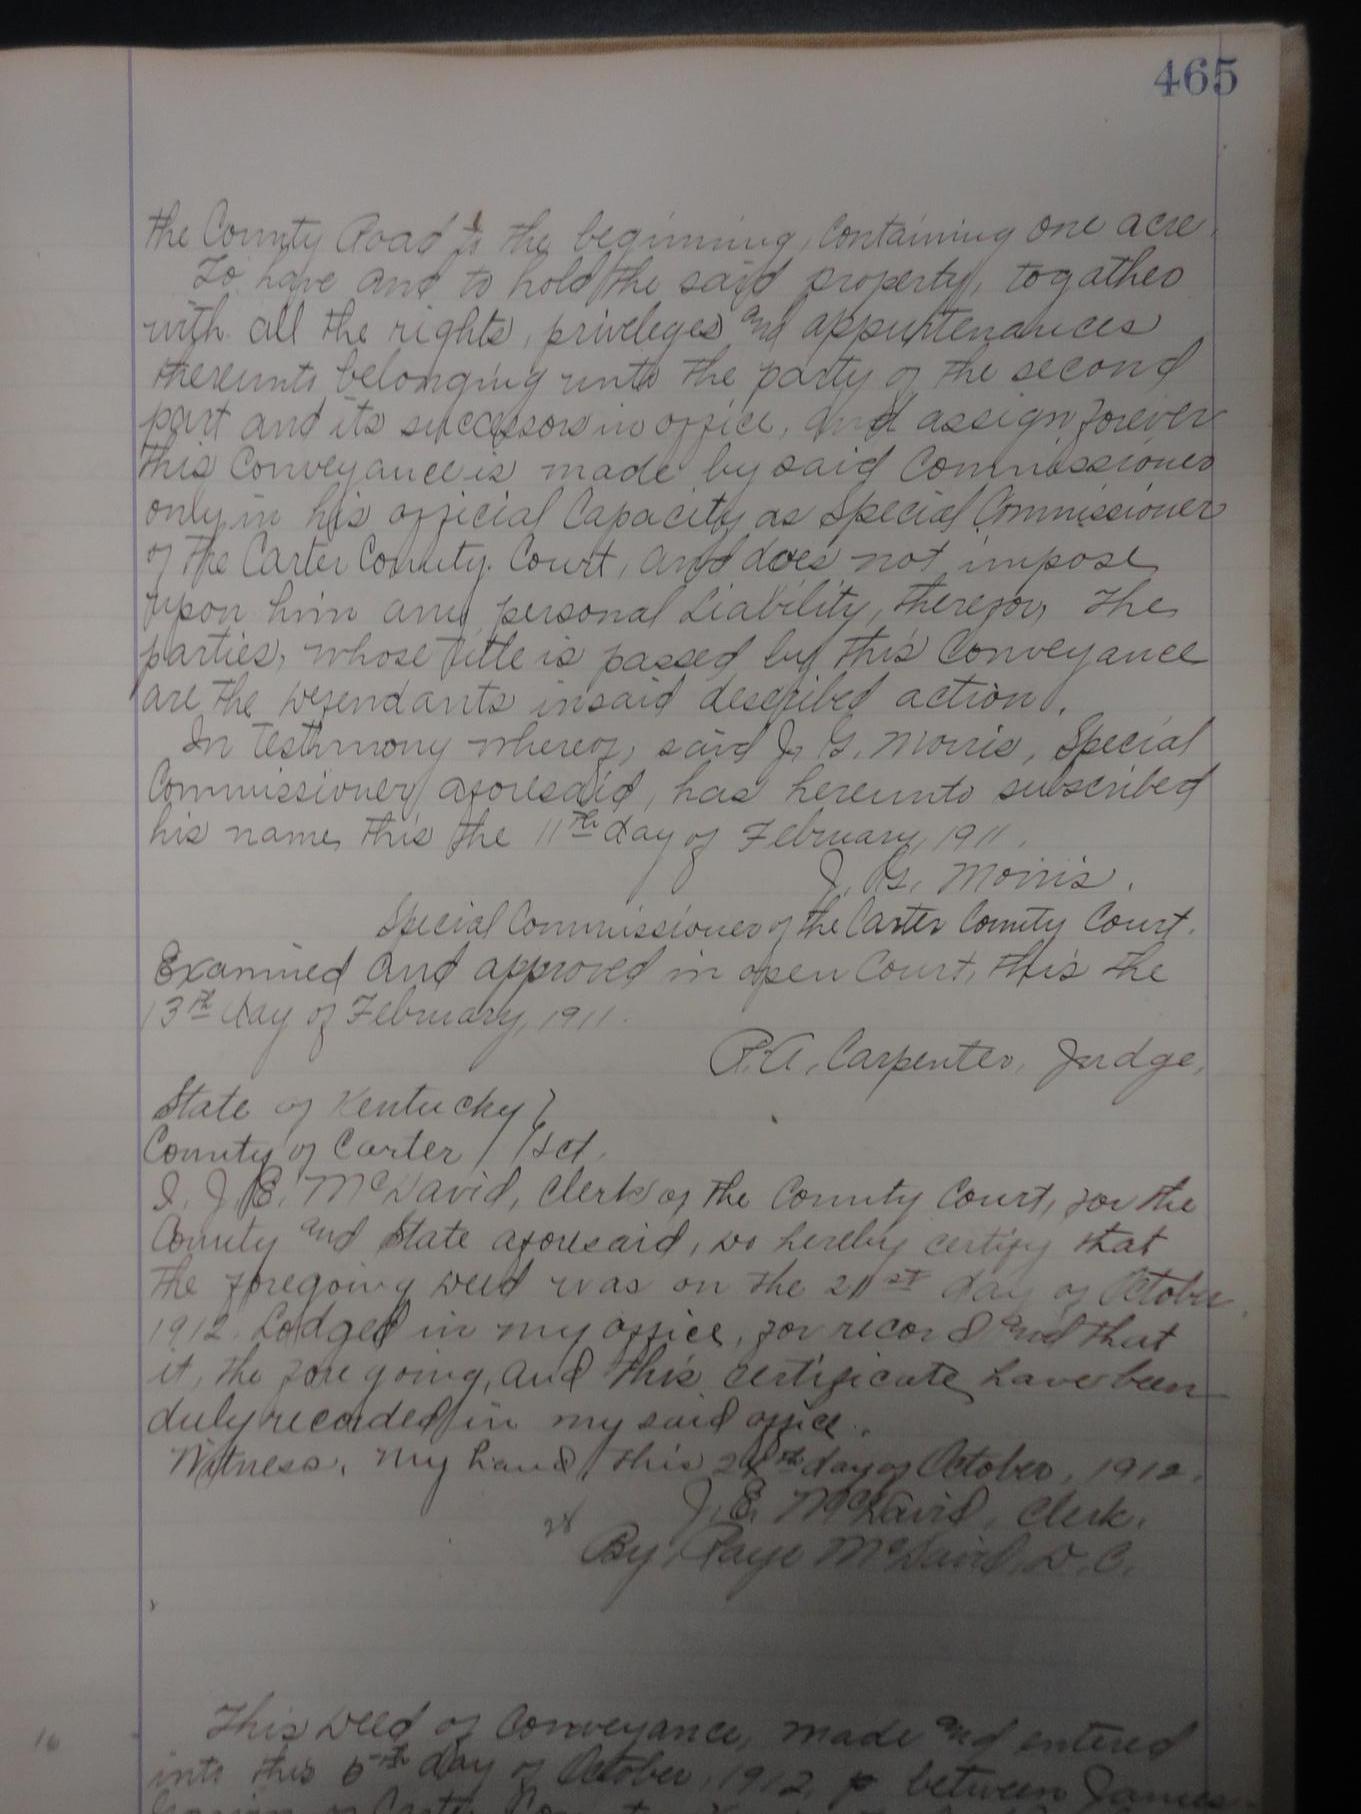 465
the County Road to the beginning, Containing one acre.
To have and to hold the said property, togather
with all the rights, priveleges and appurtenances
thereunto belonging unto the party of the second
part and its successors in office, and assign forever
this Conveyance is made by said Commissioner
only in his official Capacity as Special Commissioner
of the Carter County Court, and does not impose
upon him any personal Liability, therefor, the
parties, whose title is passed by this Conveyance
are the Defendants in said described action.
In Testimony whereof, said J. G. Morris, Special
Commissioner aforesaid, has hereunto subscribed
his name, this the 11th day of February, 1911.
J. G. Morris.
Special Commissioner of the Carter County Court.
Examined and approved in open Court, this the
13th day of February, 1911.
R.A. Carpenter, Judge,
State of Kentucky }
County of Carter / Sct.
I, J. E. McDavid, Clerk of the County Court, for the
County and State aforesaid, do hereby certify that
the foregoing Deed was on the 21st day of October
1912. Lodged in my office, for record and that
it, the foregoing, and this certificate, have been
duly recorded in my said office.
Witness, my hand this 24th day of October, 1912.
J. E. McDavid, Clerk.
By, Faye McDavid, D.C.
This Deed of Conveyance, made and entered
into this 5th day of October, 1912, between James